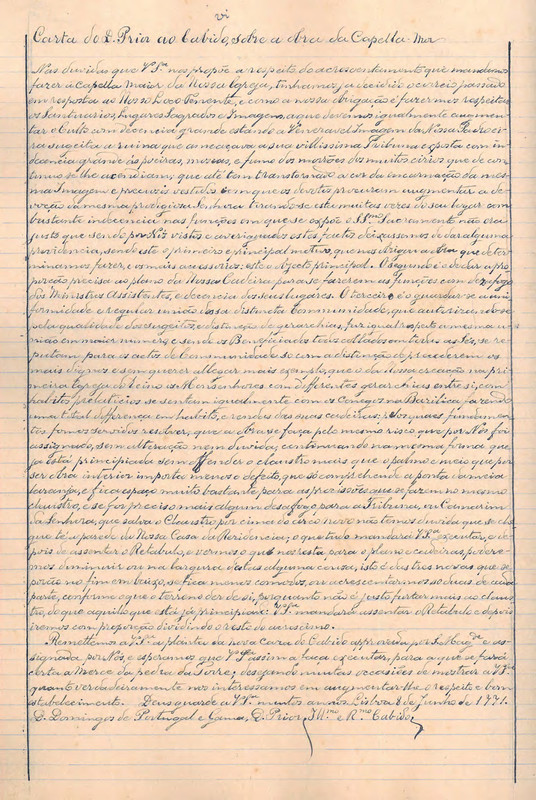 vi
Carta do D. Prior ao Cabido, sobre a Obra da Capella-Mor
Nas duvidas que V. S.ª nos propõe a respeito do acrescentamento que mandamos
fazer á Capella Maior da Nossa Egreja, tinhamos já decidido o correio passado
em resposta ao Nosso Loco Tenente, e como a nossa obrigação é fazermos respeitar
os Santuarios, Lugares Sagrados e Imagens, a que devemos igualmente augmen-
tar o Culto com decencia grande estando a Veneravel Imagem da Nossa Padroei-
ra sugeita á ruina que ameaçava a sua Tribuna exposta com in-
decencia grande ás poeiras, moscas, e fumo dos morrões dos muitos cirios que de con-
tinuo se lhe acendiam, que até tem transtornado a cor da encarnação da mes-
ma Imagem e preciosos vestidos com que os devotos procuram augmentar a de-
voção da mesma prodigiosa Senhora tirando-se estas muitas vezes do seu logar com
bastante indecencia nas funções em que se expõe o SS.mo Sacramento não era
justo que sendo por Nós vistos e averiguados estes factos deixassemos de dar alguma
providencia, sendo este o primeiro e principal motivo, que nos obrigou a obra que deter-
minamos fazer, e os mais accessorios a este objecto principal. O segundo é o de dar a pro-
porção precisa ao plano da Nossa Cadeira para se fazerem as funções com desafogo
dos Ministros Assistentes, e decencia dos seus lugares. O terceiro é o guardar-se a uni-
formidade e regular união dessa distincta Communidade, que autorizando-se
pela qualidade dos sugeitos, e distinção de gerarchias, faz igual respeito a mesma u-
nião em maior numero, e sendo os Beneficiados todos collados em teras as fez, se re-
putam para os actos de Communidade só com a distinção de precederem os
mais dignos e sem querer allegar mais exemplo, que o da Nossa creação na pri-
meira Igreja do Reino os Monsenhores com differentes gerarchias entre si, com
habitos prelaticios se sentam igualmente com os Conegos na Basilica fazendo
uma total differença em habito, e rendas das suas cadeiras; sobre os quaes fundamen-
tos fomos servidos resolver, que a obra se faça pelo mesmo risco que por Nós foi
assignado, sem alteração nem duvida, continuando na mesma forma que
já está principiada sem offender o claustro mais que o palmo e meio que por
ser obra interior importa menos o defeito, que só comprehende a ponta da meia
laranja, e fica espaço muito bastante para as procissões que se fazem no mesmo
claustro, e se for preciso mais algum desafogo para a Tribuna, ou Camarim
da Senhora, que salva o Claustro por cima do circo novo não temos duvida que se cha-
que té a parede da Nossa Casa da Residencia; o que tudo mandará V. S.ª executar, e de-
pois de assentar o Retabulo, e vermos o que nos resta para o plano e cadeiras podere-
mos diminuir ou na largura destas alguma cousa, isto é das tres novas que se
porão no fim em baixo, se fica menos comodos, ou acrescentarmos só duas de cada
parte, conforme o que o terreno der de si, porquanto não é justo furtar mais ao claus-
tro, do que aquilo que está já principiado: V. S.ª mandará assentar o Retabulo e depois
iremos com proporção dividindo o resto do acrescimo.
Remettemos a V. S.ª a planta da nova Casa do Cabido approvada por S. Mag.de e as-
signada por Nós, e esperamos que V. S.ª assim a faça executar, para a que se fará
certa a Merce da pedra da Torre; desejando muitas occasiões de mostrar a V. S.ª
quanto verdadeiramente nos interessamos em augmentar-lhe o respeito e bom
estabelecimento. Deus guarde a V. S.ª muitos annos Lisboa 8 de Junho de 1771.
D. Domingos de Portugal e Gama, D. Prior, Ill.mo e R.mo Cabido,